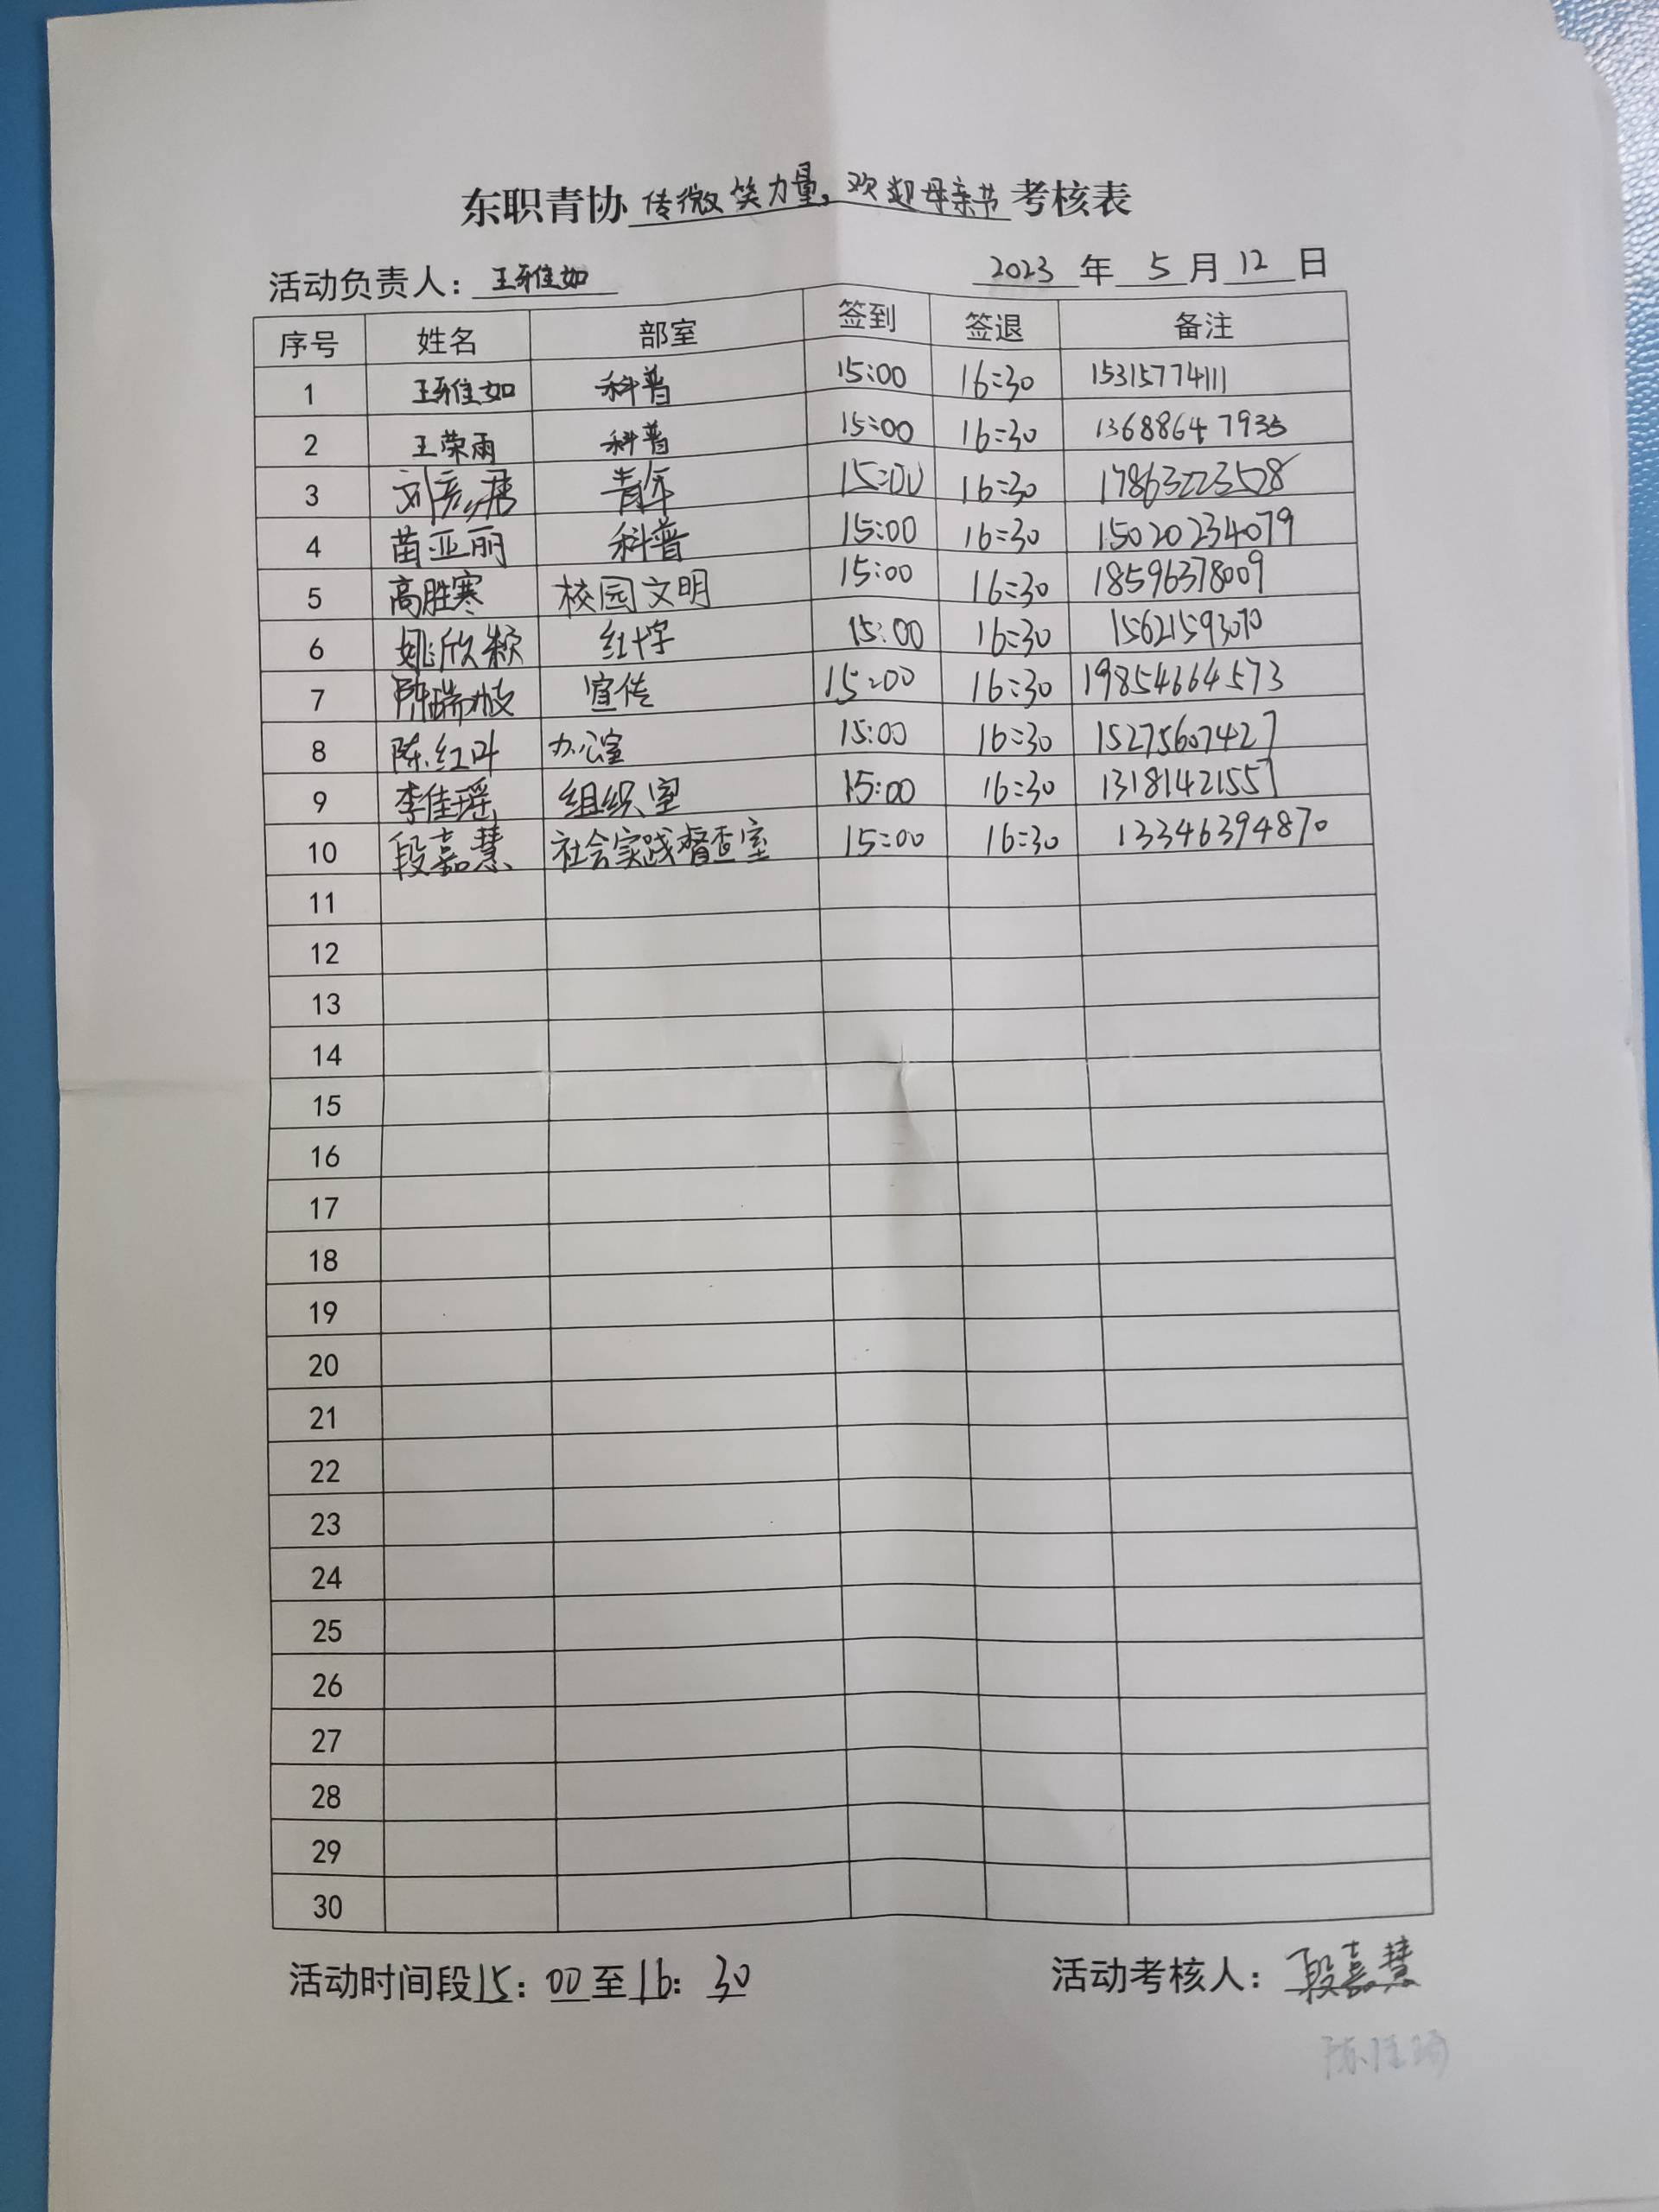 东职青协 传微笑力量，欢迎母亲节 考核表
活动负责人：王雅如 2023 年 5 月 12 日
序号 姓名 部室 签到 签退 备注
1 王雅如 科普 15:00 16:30 15315774111
2 王荣雨 科普 15:00 16:30 13688647935
3 刘彦君 青年 15:00 16:30 17863223528
4 苗亚丽 科普 15:00 16:30 15020234079
5 高胜寒 校园文明 15:00 16:30 18596378009
6 姚欣颖 红十字 15:00 16:30 15621593070
7 陈瑞 宣传 15:00 16:30 19854664573
8 陈红叶 办公室 15:00 16:30 15275607427
9 李佳瑶 组织室 15:00 16:30 13181421557
10 段嘉慧 社会实践督查室 15:00 16:30 13346394870
11
12
13
14
15
16
17
18
19
20
21
22
23
24
25
26
27
28
29
30
活动时间段15：00至16：30 活动考核人：段嘉慧